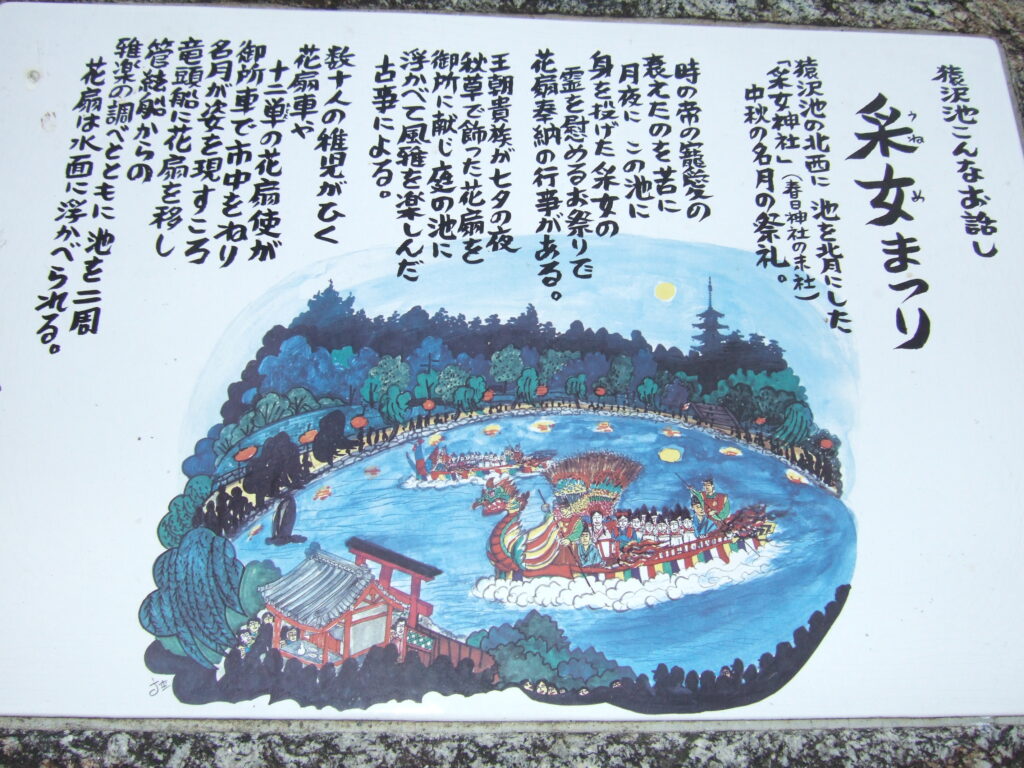 猿沢池こんなお話し
采女まつり
うねめ
猿沢池の北西に 池を背にした
「采女神社」(春日神社の末社)
中秋の名月の祭礼。
時の帝の寵愛の
衰えたのを苦に
月夜に この池に
身を投げた采女の
霊を慰めるお祭りで
花扇奉納の行事がある。
王朝貴族が七夕の夜
秋草で飾った花扇を
御所に献じ庭の池に
浮かべて風雅を楽しんだ
古事による。
数十人の稚児がひく
花扇車や
十二単の花扇使が
御所車で市中をねり
名月が姿を現すころ
竜頭船に花扇を移し
管絃船からの
雅楽の調べとともに 池を二周
花扇は水面に浮かべられる。